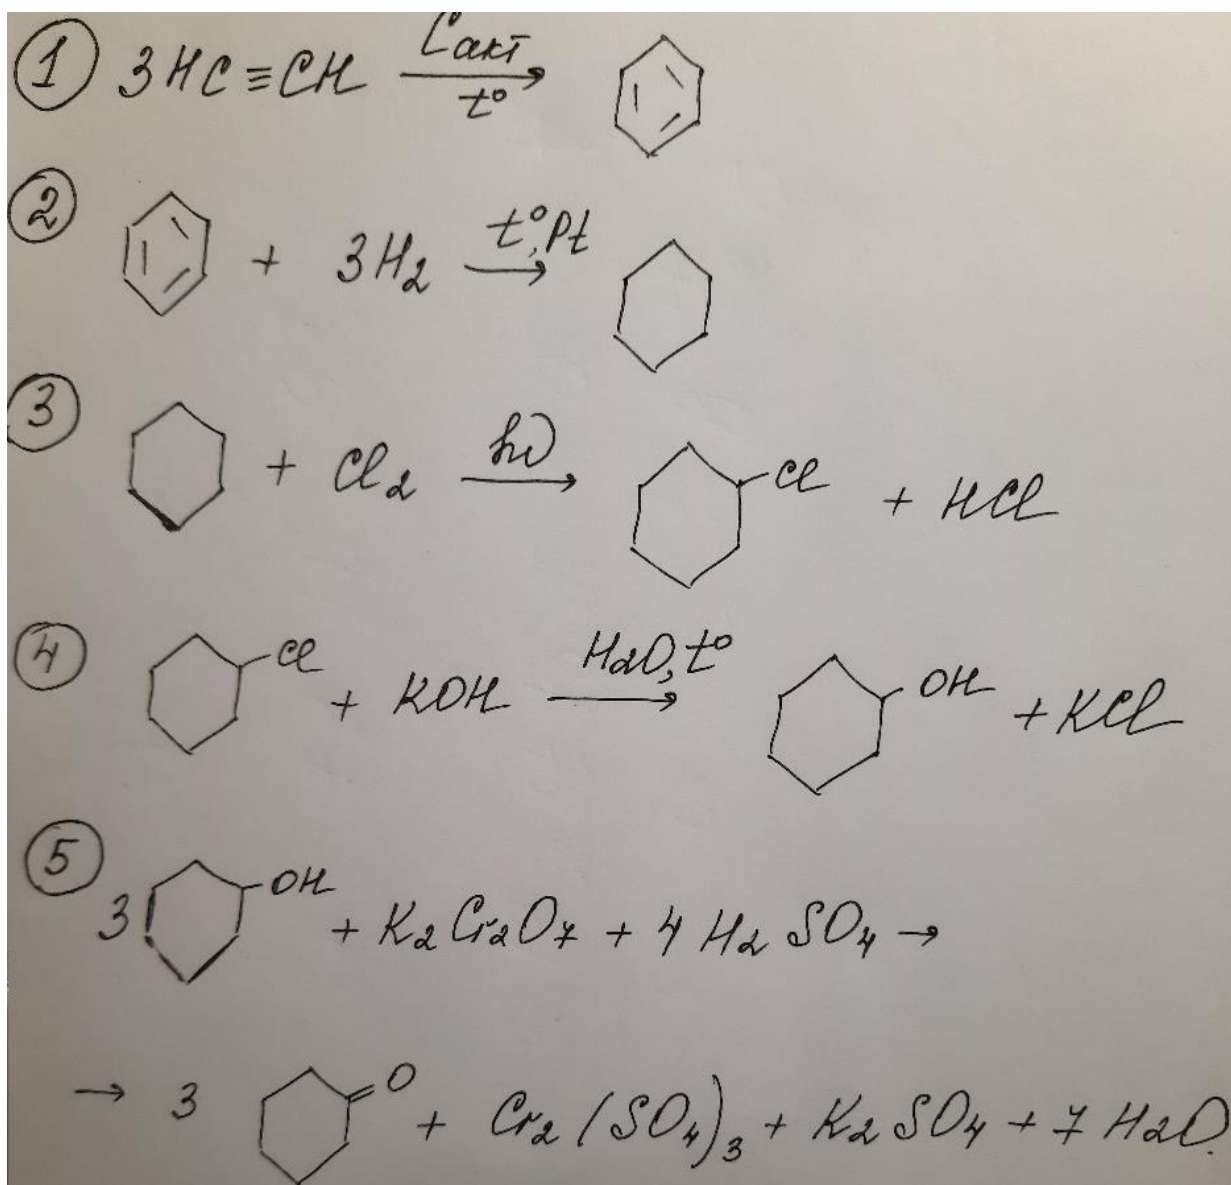 ① 3HC≡CH Cакт t° →
② + 3H₂ t°, Pt →
③ + Cl₂ hν → Cl + HCl
④ Cl + KOH H₂O, t° → OH + KCl
⑤ 3 OH + K₂Cr₂O₇ + 4 H₂SO₄ →
→ 3 O + Cr₂(SO₄)₃ + K₂SO₄ + 7 H₂O.